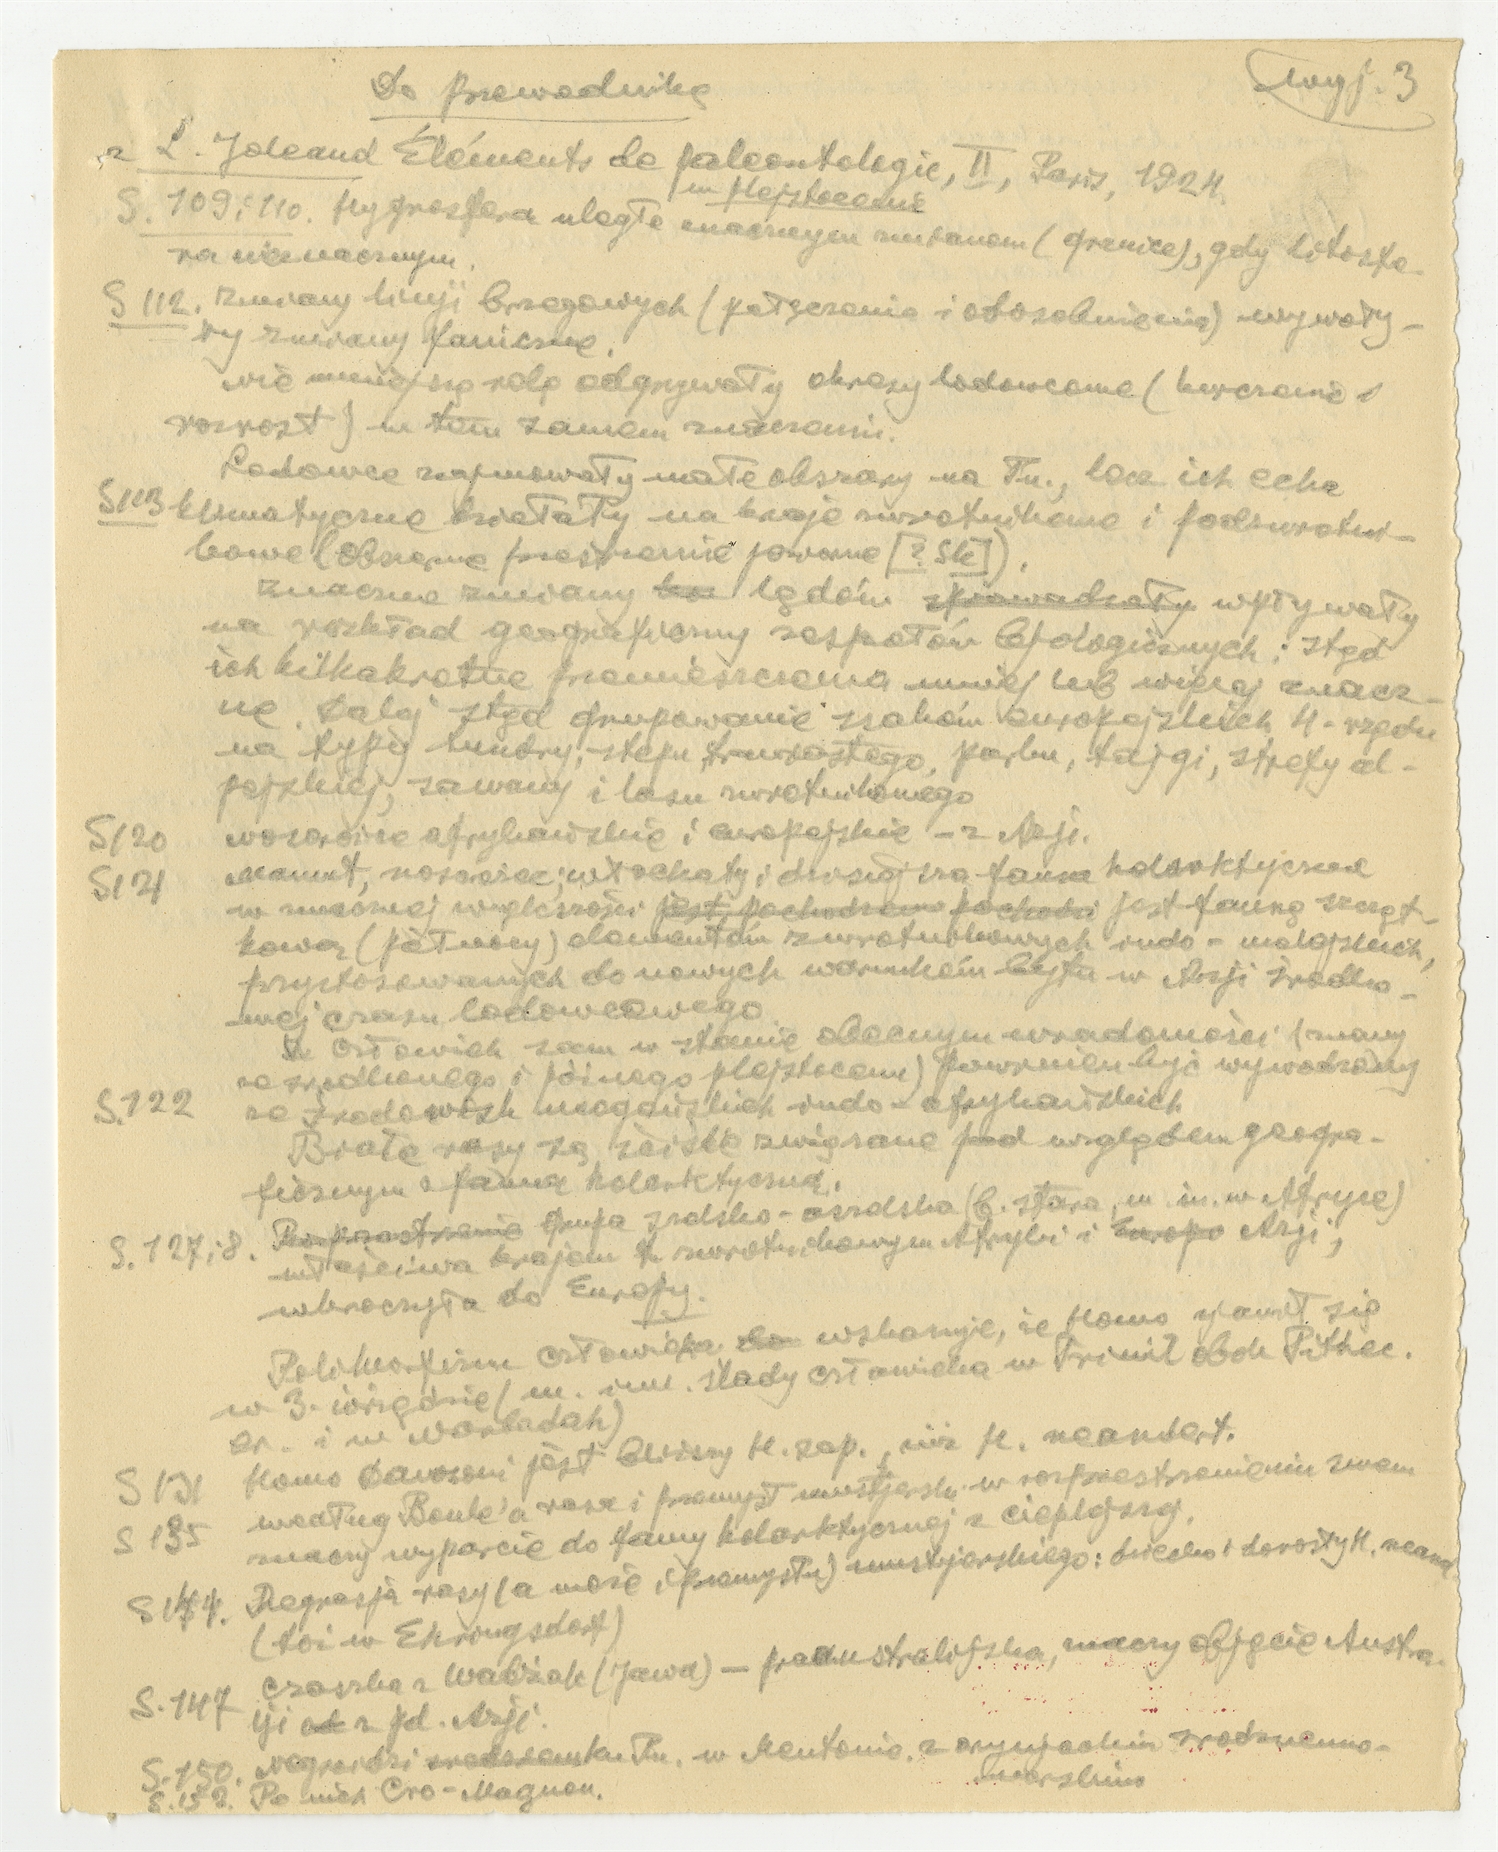 Do Przewodnika
wyj. 3
z L. Joleaud Éléments de paléontologie, II, Paris, 1924.
w plejstocenie
S. 109 i 110. Hydrosfera uległa znacznym zmianom (granice), gdy litosfe-
ra nieznacznym.
S 112. Zmiany linji brzegowych (połączenia i odosobnienia) wywoły-
ry zmiany faniczne.
nie mniejszą rolę odgrywały okresy lodowcowe (kurczenie i
rozrost) w tem samem znaczeniu.
Lodowce zajmowały małe obszary na Pn., lecz ich echa
S 113 klimatyczne działały na kraje zwrotnikowe i podzwrotni-
kowe (obszerne przestrzenie jeziorne [? Sk]).
Znaczne zmiany lądów sprowadzały wpływały
na rozkład geograficzny zespołów biologicznych; stąd
ich kilkakrotne przemieszczenia mniej lub więcej znacz-
ne. Dalej stąd grupowanie ssaków europejskich 4-rzędu
na typy tundry, stepu trawiastego, parku, tajgi, strefy al-
pejskiej, sawany i lasu zwrotnikowego
S 120 nosorożce afrykańskie i europejskie – z Azji.
S 121 Mamut, nosorożec włochaty i dzisiejsza fauna holarktyczna
w znacznej większości jest pochodzenia pochodzi jest fauną szcząt-
kową (północy) elementów zwrotnikowych indo-malajskich,
przystosowanych do nowych warunków bytu w Azji środko-
wej czasu lodowcowego.
Człowiek sam w stanie obecnym wiadomości (znany
ze średniego i późnego plejstocenu) powinien być wywodzony
S. 122 ze środowisk neogeńskich indo-afrykańskich
Białe rasy są ściśle związane pod względem geogra-
ficznym z fauną holarktyczną.
S. 127 i 8. Rozprzestrzenie Grupa szelsko-aszelska (b. stara, m. in. w Afryce)
właściwa krajom zwrotnikowym Afryki i Europy Azji,
wkroczyła do Europy.
Polimorfizm człowieka wskazuje, że Homo zjawił się
w 3. rzędzie (m. inn. ślady człowieka w Trinil obok Pithec.
er. i w wokładach)
S 131 Homo Dawsoni jest bliższy H. sap., niż H. neandert.
S 135 według Boule'a rasa i przemysł mustjerski w rozprzestrzenieniu swem
znaczy wyparcie do fauny holarktycznej z cieplejszej.
S 144. Regresja rasy (a może i przemysłu) mustjerskiego: dziecko i dorosły H. neand.
(kości w Ehringsdorf)
S. 147 czaszka z Wadżak (Jawa) — praaustralijska, znaczy objęcie Austra-
lji od z pd. Azji.
S. 150. Negroidzi Pn. w Mentonie, z śródziemno-
morskim
S. 152. Po nich Cro-Magnon.